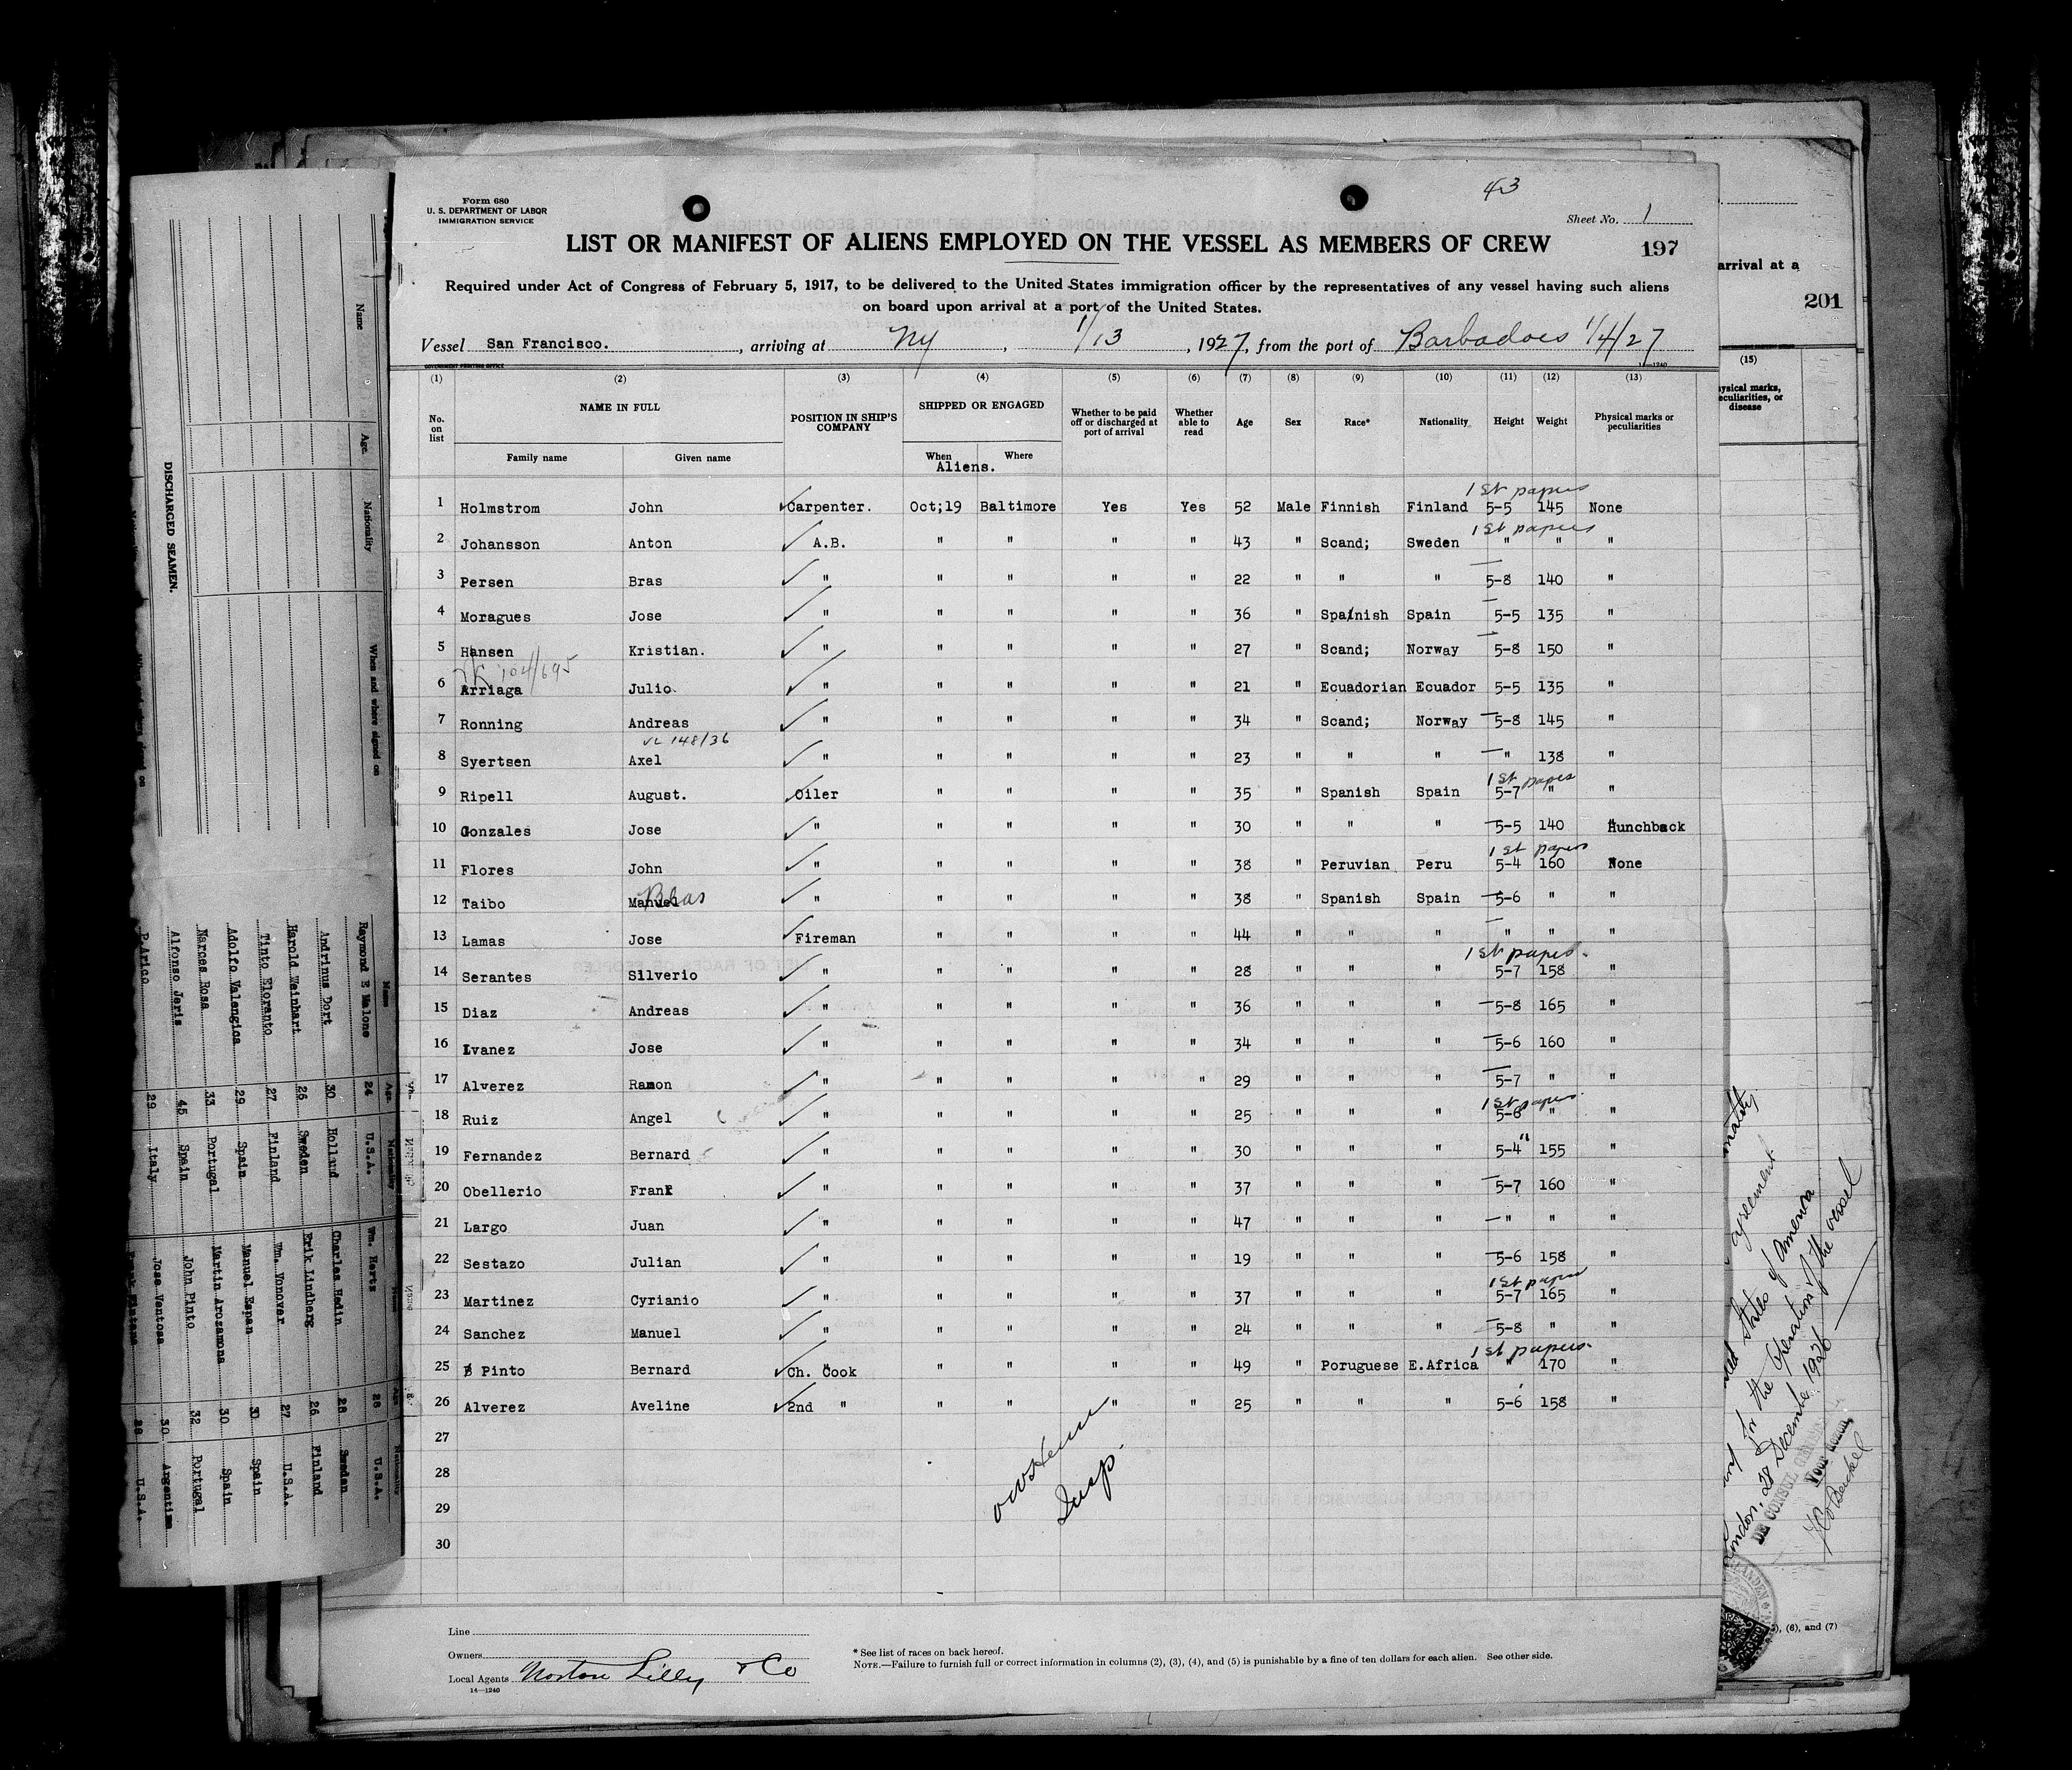 Form 680
U. S. DEPARTMENT OF LABOR
IMMIGRATION SERVICE
43
Sheet No. 1
LIST OR MANIFEST OF ALIENS EMPLOYED ON THE VESSEL AS MEMBERS OF CREW
197
Required under Act of Congress of February 5, 1917, to be delivered to the United States immigration officer by the representatives of any vessel having such aliens
on board upon arrival at a port of the United States.
Vessel San Francisco. , arriving at Ny , 1/13 , 1927, from the port of Barbadoes 1/4/27
GOVERNMENT PRINTING OFFICE 14—1240
(1) (2) (3) (4) (5) (6) (7) (8) (9) (10) (11) (12) (13)
No. on list NAME IN FULL Family name Given name POSITION IN SHIP'S COMPANY SHIPPED OR ENGAGED When Where Whether to be paid off or discharged at port of arrival Whether able to read Age Sex Race* Nationality Height Weight Physical marks or peculiarities
Aliens.
1st papers
1 Holmstrom John Carpenter. Oct;19 Baltimore Yes Yes 52 Male Finnish Finland 5-5 145 None
1st papers
2 Johansson Anton A.B. " " " " 43 " Scand; Sweden " " "
3 Persen Bras " " " " " 22 " " " 5-8 140 "
4 Moragues Jose " " " " " 36 " Spanish Spain 5-5 135 "
5 Hansen Kristian. " " " " " 27 " Scand; Norway 5-8 150 "
104/695
6 Arriaga Julio. " " " " " 21 " Ecuadorian Ecuador 5-5 135 "
7 Ronning Andreas " " " " " 34 " Scand; Norway 5-8 145 "
148/36
8 Syertsen Axel " " " " " 23 " " " " 138 "
1st papes
9 Ripell August. Oiler " " " " 35 " Spanish Spain 5-7 " "
10 Gonzales Jose " " " " " 30 " " " 5-5 140 Hunchback
1st papers
11 Flores John " " " " " 38 " Peruvian Peru 5-4 160 None
Blas
12 Taibo Manuel " " " " " 38 " Spanish Spain 5-6 " "
13 Lamas Jose Fireman " " " " 44 " " " " " "
1st papes.
14 Serantes Silverio " " " " " 28 " " " 5-7 158 "
15 Diaz Andreas " " " " " 36 " " " 5-8 165 "
16 Ivanez Jose " " " " " 34 " " " 5-6 160 "
17 Alverez Ramon " " " " " 29 " " " 5-7 " "
1st papes.
18 Ruiz Angel " " " " " 25 " " " 5-6 " "
19 Fernandez Bernard " " " " " 30 " " " 5-4" 155 "
20 Obellerio Frank " " " " " 37 " " " 5-7 160 "
21 Largo Juan " " " " " 47 " " " " " "
22 Sestazo Julian " " " " " 19 " " " 5-6 158 "
1st papes
23 Martinez Cyrianio " " " " " 37 " " " 5-7 165 "
24 Sanchez Manuel " " " " " 24 " " " 5-8 " "
1st papers.
25 Pinto Bernard Ch. Cook " " " " 49 " Poruguese E.Africa " 170 "
26 Alverez Aveline 2nd " " " " " 25 " " " 5-6 158 "
27
28
29
30
Insp.
Line
Owners
Local Agents Norton Lilly & Co
14—1240
* See list of races on back hereof.
NOTE.—Failure to furnish full or correct information in columns (2), (3), (4), and (5) is punishable by a fine of ten dollars for each alien. See other side.
DISCHARGED SEAMEN.
Name Age. Nationality When and where signed on
Name Age. Nationality Name Age Nationality
Raymond E Malone 24 U.S.A. Wm. Hertz 28 U.S.A.
Andrinus Dort 30 Holland Charles Hedin 28 Sweden
Harold Weinhart 26 Sweden Erik Lindberg 26 Finland
Tinto Eloranto 27 Finland Wm. Vonover 27 U.S.A.
Adolfo Valengica 29 Spain Manuel Espan 30 Spain
Narces Rosa 33 Portugal Martin Arozamona 30 Spain
Alfonso Jeris 45 Spain John Pinto 32 Portugal
P.Arico 29 Italy Jose Ventosa 30 Argentina
28 U.S.A.
arrival at a
201
(15)
physical marks, peculiarities, or disease
agreement
States of America
for the operation of the vessel
London, 28 December 1926
CONSUL
(6), and (7)